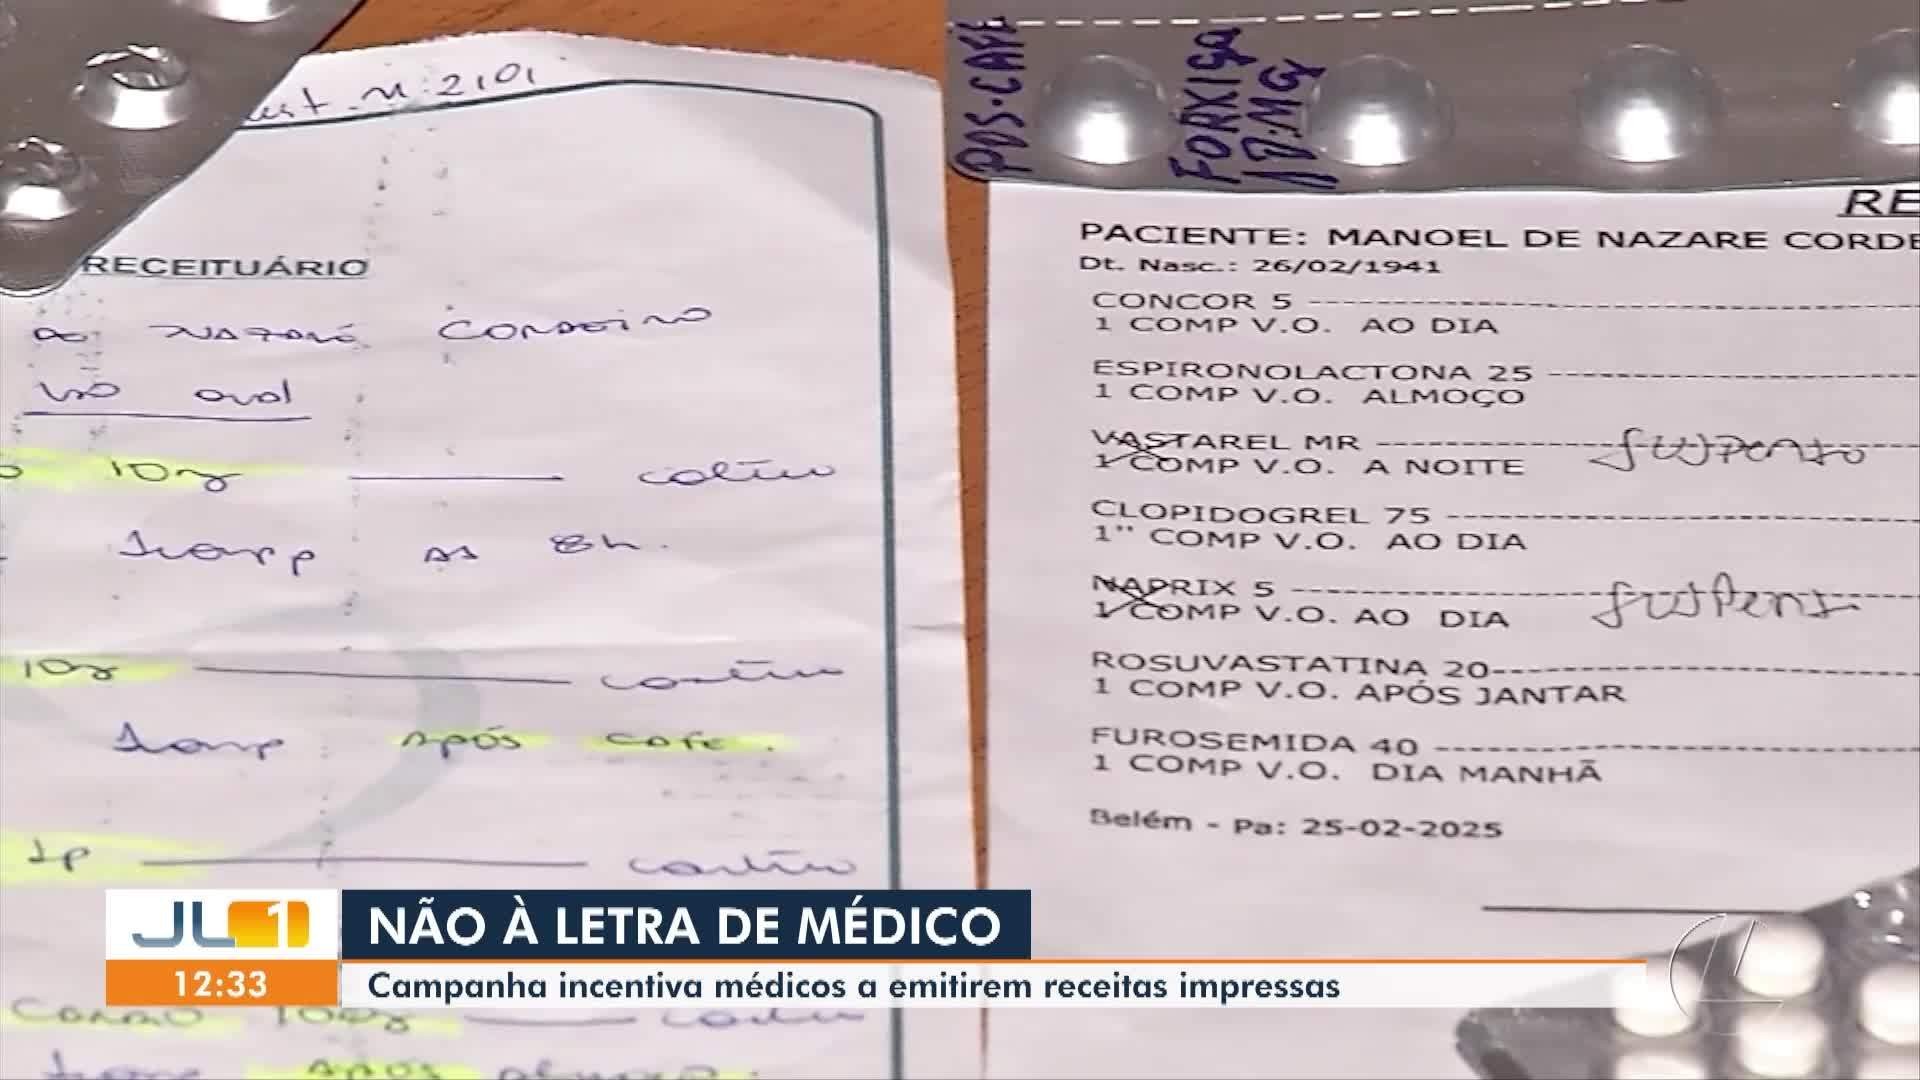 n: 2101
RECEITUÁRIO
de NAZARÉ CORDEIRO
uso oral
10mg contínuo
1 comp às 8h.
10mg contínuo
1 comp após café.
contínuo
100mg contínuo
após almoço.
PÓS-CAFÉ
FORXIGA
10.MG
RE
PACIENTE: MANOEL DE NAZARE CORDE
Dt. Nasc.: 26/02/1941
CONCOR 5 --------------------
1 COMP V.O. AO DIA
ESPIRONOLACTONA 25 --------------------
1 COMP V.O. ALMOÇO
VASTAREL MR -------------------- suspenso
1 COMP V.O. A NOITE
CLOPIDOGREL 75 --------------------
1" COMP V.O. AO DIA
NAPRIX 5 -------------------- suspenso
1 COMP V.O. AO DIA
ROSUVASTATINA 20--------------------
1 COMP V.O. APÓS JANTAR
FUROSEMIDA 40 --------------------
1 COMP V.O. DIA MANHÃ
Belém - Pa: 25-02-2025
JL1
NÃO À LETRA DE MÉDICO
12:33
Campanha incentiva médicos a emitirem receitas impressas